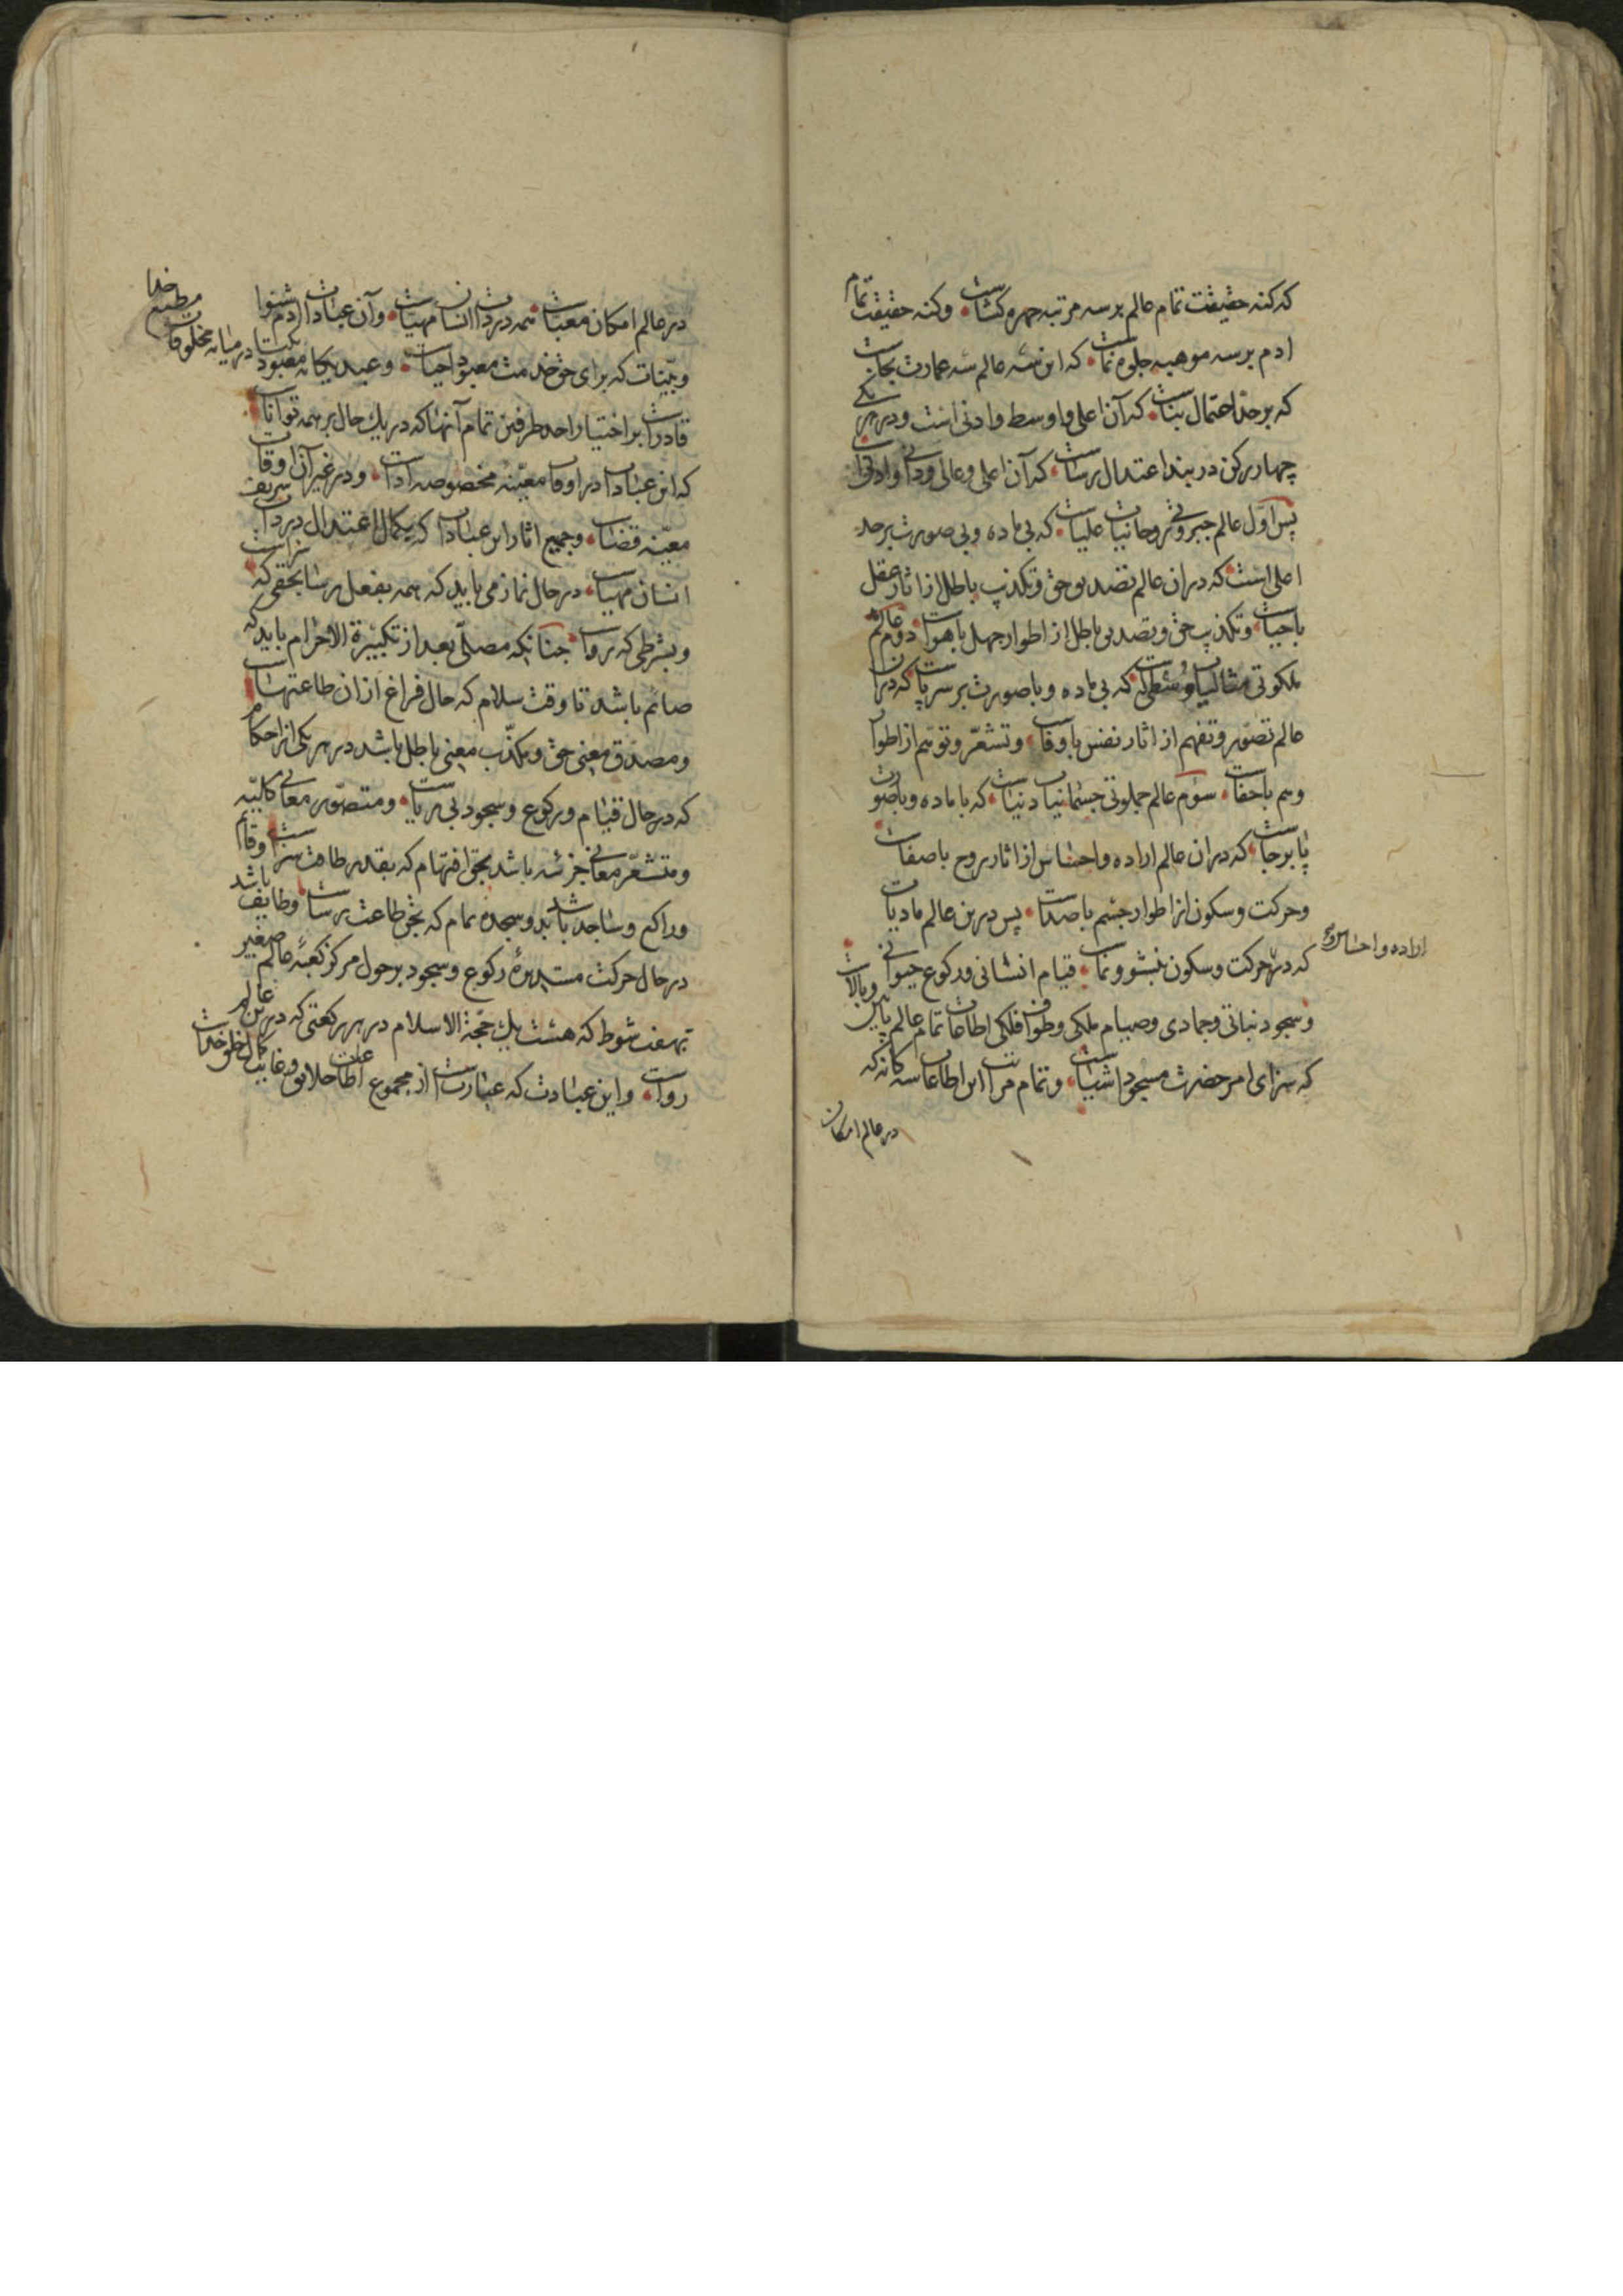 که کنه حقیقت تمام عالم بر سه مرتبه چهره کشاست وکنه حقیقت تمام
ادم بر سه موهبه جلوه نماست که این سه عالم سه عمارت بجاست
که بر حد احتمال بناست که آن اعلی و اوسط و ادنی است ودر هر یکی
چهار رکن در بند اعتدال رساست که آن اعلی وعالی ودانی وادنی
پس اول عالم جبروتی روحانیات علیاست که بی ماده وبی صورت بر حد
اعلی است که دران عالم تصدیق حق وتکذیب باطل از اثار عقل
باحیاست وتکذیب حق وتصدیق باطل از اطوار جهل باهواست دوم عالم
ملکوتی مثالیات وسطی که بی ماده وباصورت بر سر پاست که دران
عالم تصور وتفهم از اثار نفس باوفاست وتشعر وتوهم از اطوار
وهم باخفاست سوم عالم جملوتی جسمانیات دنیاست که باماده وباصورت
پابرجاست که دران عالم اراده واحساس از اثار روح باصفاست
وحرکت وسکون از اطوار جسم باصداست پس درین عالم مادیات
اراده واحساس روح
که در حرکت وسکون بنشو ونماست قیام انسانی ورکوع حیوانی
وسجود نباتی وجمادی وصیام ملکی وطواف فلکی اطاعات تمام عالم پایین وبالاست
که سزای امر حضرت مسجود اشیاست وتمام مراتب این اطاعات سه کانه که
در عالم امکان
در عالم امکان معبات همه در ذات انسان مهیاست وآن عبادات ادم شنوا
وبینات که برای حق خدمت معبود احیاست وعبید یکانه معبود یکتا در میانه مخلوقات مطیع خدا
قادر است بر اختیار احد طرفین تمام آنها که در یک حال بر همه تواناست
که این عبادات در اوقات معینه مخصوصه اداست ودر غیر آن اوقات
معینه قضاست وجمیع اثار این عبادات که بکمال اعتدال در ذات شریف
انسان مهیاست در حال نماز می باید که همه بفعل رسا بحقی که سزاست
وبشرطی که رواست چنانکه مصلی بعد از تکبیرة الاحرام باید که
صائم باشد تا وقت سلام که حال فراغ ازان طاعتهاست
ومصدق معنی حق ومکذب معنی باطل باشد در هر یکی از احکام
که در حال قیام ورکوع وسجود بی ریاست ومتصور معانی کلیه
ومتشعر معانی جزئیه باشد بحق افهام که بقدر طاقت سزاست وقائم
وراکع وساجد باشد بدو سجده تمام که بحق طاعت رساست وطایف باشد
در حال حرکت مستدیره رکوع وسجود بر حول مرکز کعبه عالم صغیر
بهفت شوط که هشت یک حجة الاسلام در هر رکعتی که درین عالم
رواست واین عبادت که عبارتست از مجموع اطاعات خلایق وغایت کمال